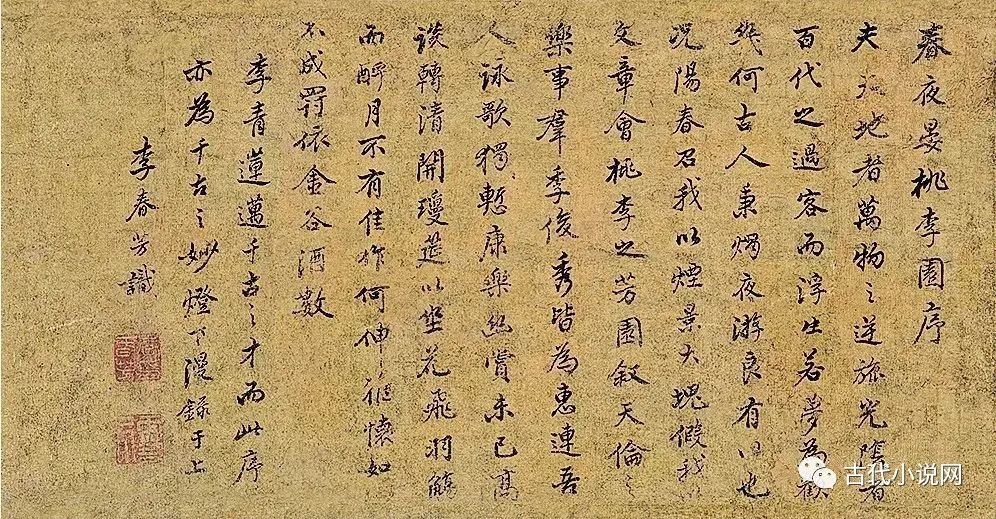 春夜晏桃李園序
夫天地者萬物之逆旅光陰者
百代之過客而浮生若夢為歡
幾何古人秉燭夜游良有以也
況陽春召我以煙景大塊假我以
文章會桃李之芳園敘天倫之
樂事羣季俊秀皆為惠連吾
人詠歌獨慙康樂幽賞未已高
談轉清開瓊筵以坐花飛羽觴
而醉月不有佳作何伸雅懷如
不成罰依金谷酒數
李青蓮邁千古之才而此序
亦為千古之妙燈下漫錄于上
李春芳識
古代小说网